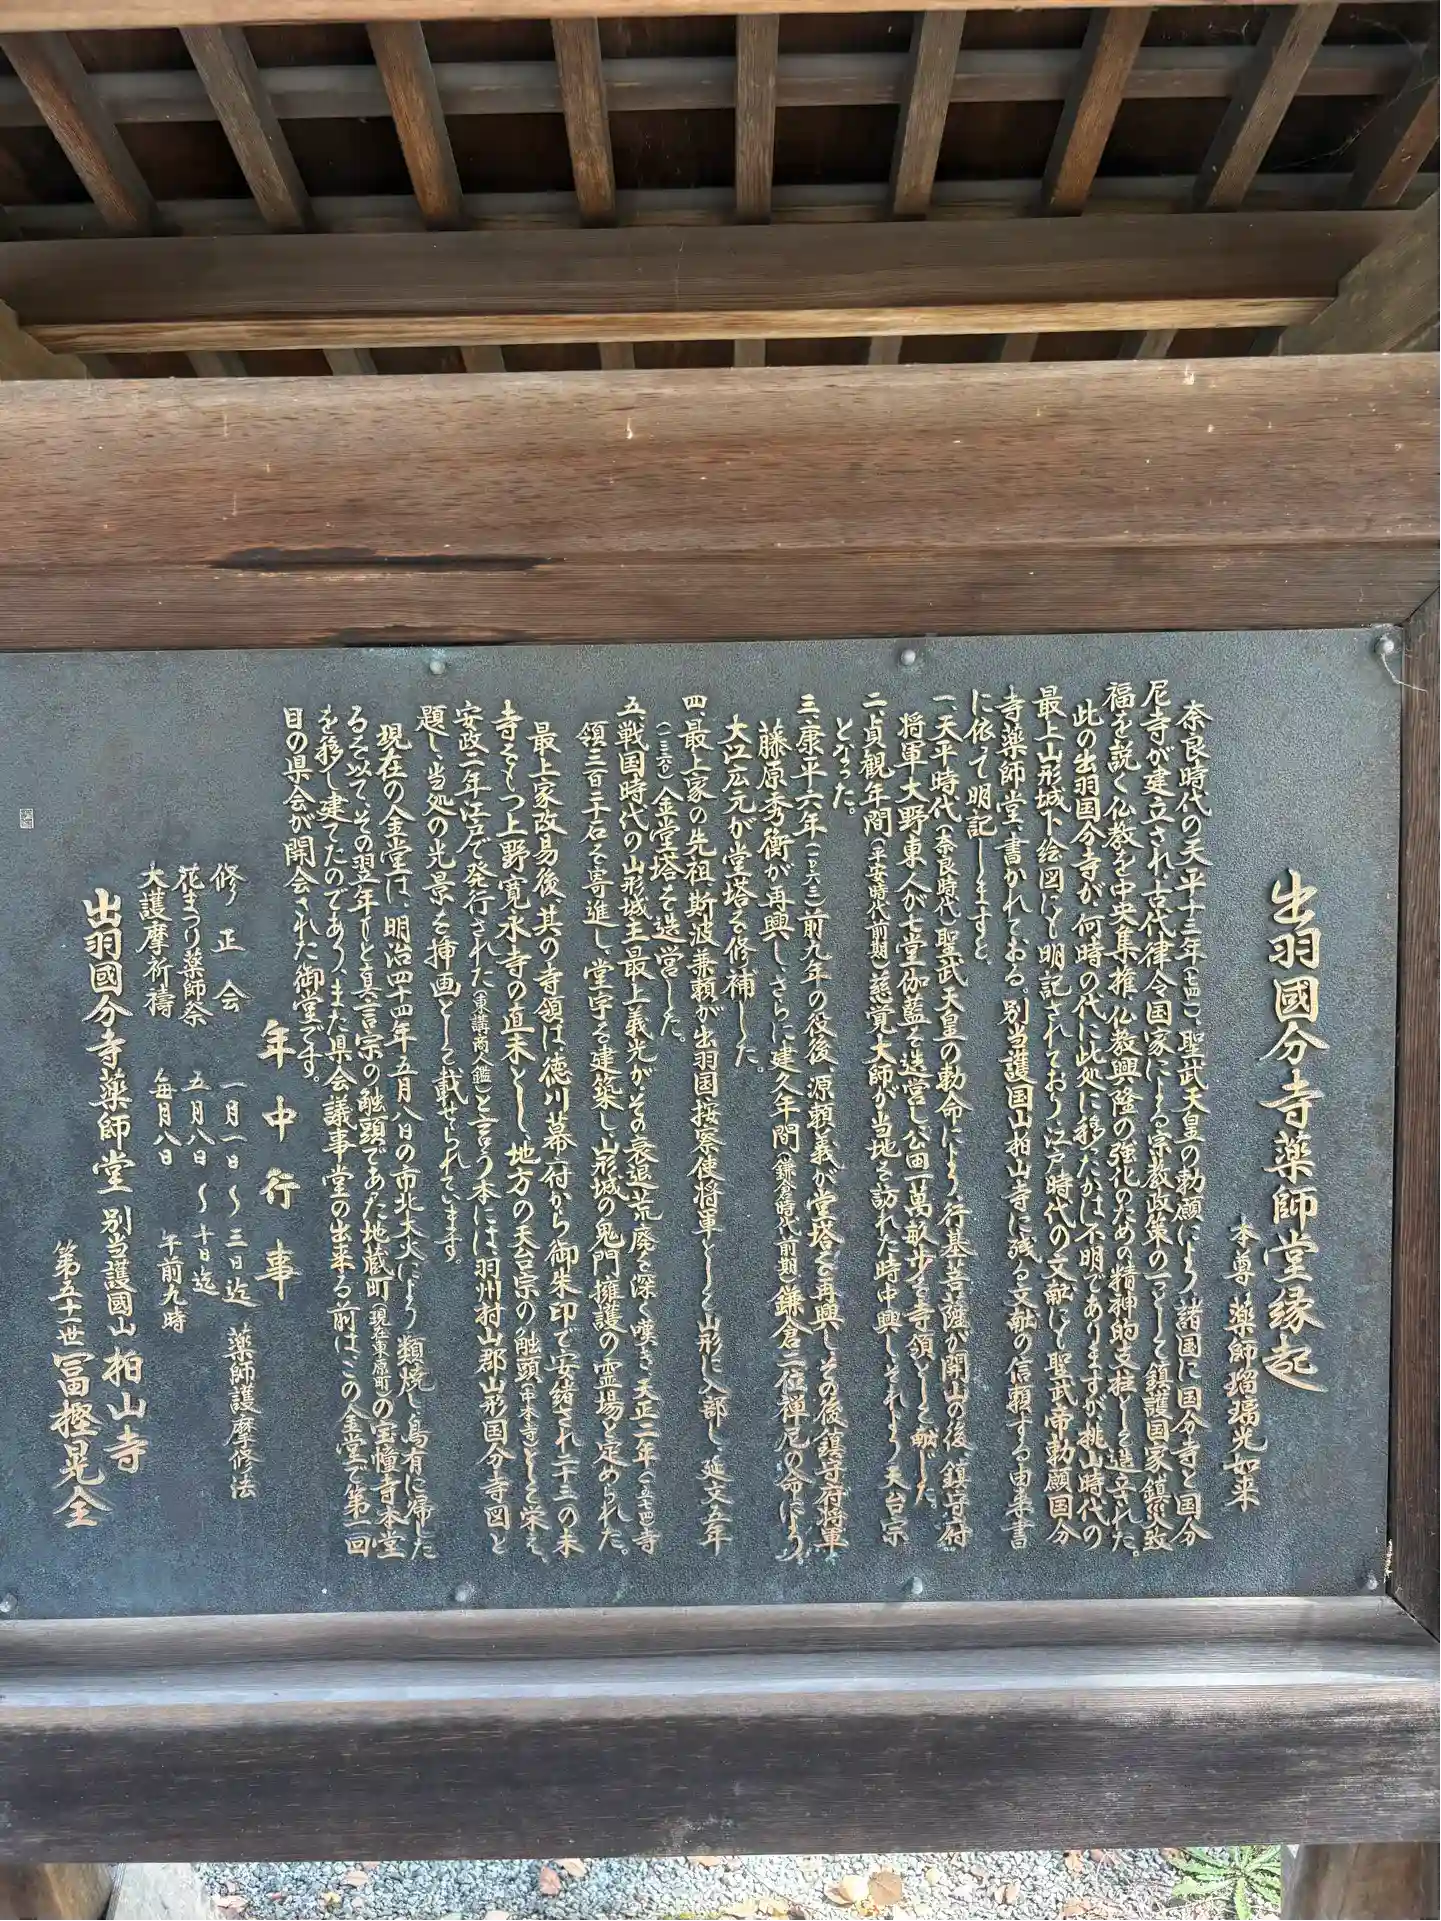 出羽國分寺薬師堂縁起
本尊 薬師瑠璃光如来
奈良時代の天平十三年(七四一)聖武天皇の勅願により、諸国に国分寺と国分
尼寺が建立され、古代律令国家による宗教政策の一つとして鎮護国家、鎮災致
福を説く仏教を中央集権、仏教興隆の強化のための精神的支柱として造立された。
此の出羽国分寺が何時の代に此処に移ったかは不明でありますが、桃山時代の
最上山形城下絵図にも明記されており、江戸時代の文献にも聖武帝勅願国分
寺薬師堂、書かれておる。別当護国山柏山寺に残る文献の信頼する由来書
に依って明記しますと、
一、天平時代(奈良時代)聖武天皇の勅命により、行基菩薩が開山の後、鎮守府
将軍大野東人が七堂伽藍を造営し、公田一萬畝歩を寺領として献じた。
二、貞観年間(平安時代前期)慈覚大師が当地を訪れた時中興しそれより天台宗
となった。
三、康平六年(一〇六三)前九年の役後、源頼義が堂塔を再興し、その後鎮守府将軍
藤原秀衡が再興し、さらに建久年間(鎌倉時代前期)鎌倉二位禅尼の命により、
大江広元が堂塔を修補した。
四、最上家の先祖、斯波兼頼が出羽国按察使将軍として山形に入部し、延文五年
(一三六〇)金堂塔を造営した。
五、戦国時代の山形城主最上義光がその衰退荒廃を深く嘆き、天正二年(一五七四)寺
領三百二十石を寄進し、堂宇を建築し、山形城の鬼門擁護の霊場と定められた。
最上家改易後、其の寺領は、徳川幕府から御朱印で安緒され二十三の末
寺をもつ上野寛永寺の直末とし、地方の天台宗の触頭(中本寺)として栄え、
安政二年江戸で発行された(東講商人鑑)と言う本には、羽州村山郡山形国分寺図と
題し、当処の光景を挿画として載せられています。
現在の金堂は、明治四十四年五月八日の市北大火により類焼し、烏有に帰した
るを以て、その翌年もと真言宗の触頭であった地蔵町(現在東原町)の宝幢寺本堂
を移し建てたのであり、また県会議事堂の出来る前は、この金堂で第一回
目の県会が開会された御堂です。
年中行事
修正会 一月一日〜三日迄 薬師護摩修法
花まつり薬師祭 五月八日〜十日迄
大護摩祈祷 毎月八日 午前九時
出羽國分寺薬師堂 別当護國山 柏山寺
第五十一世 冨樫晃全